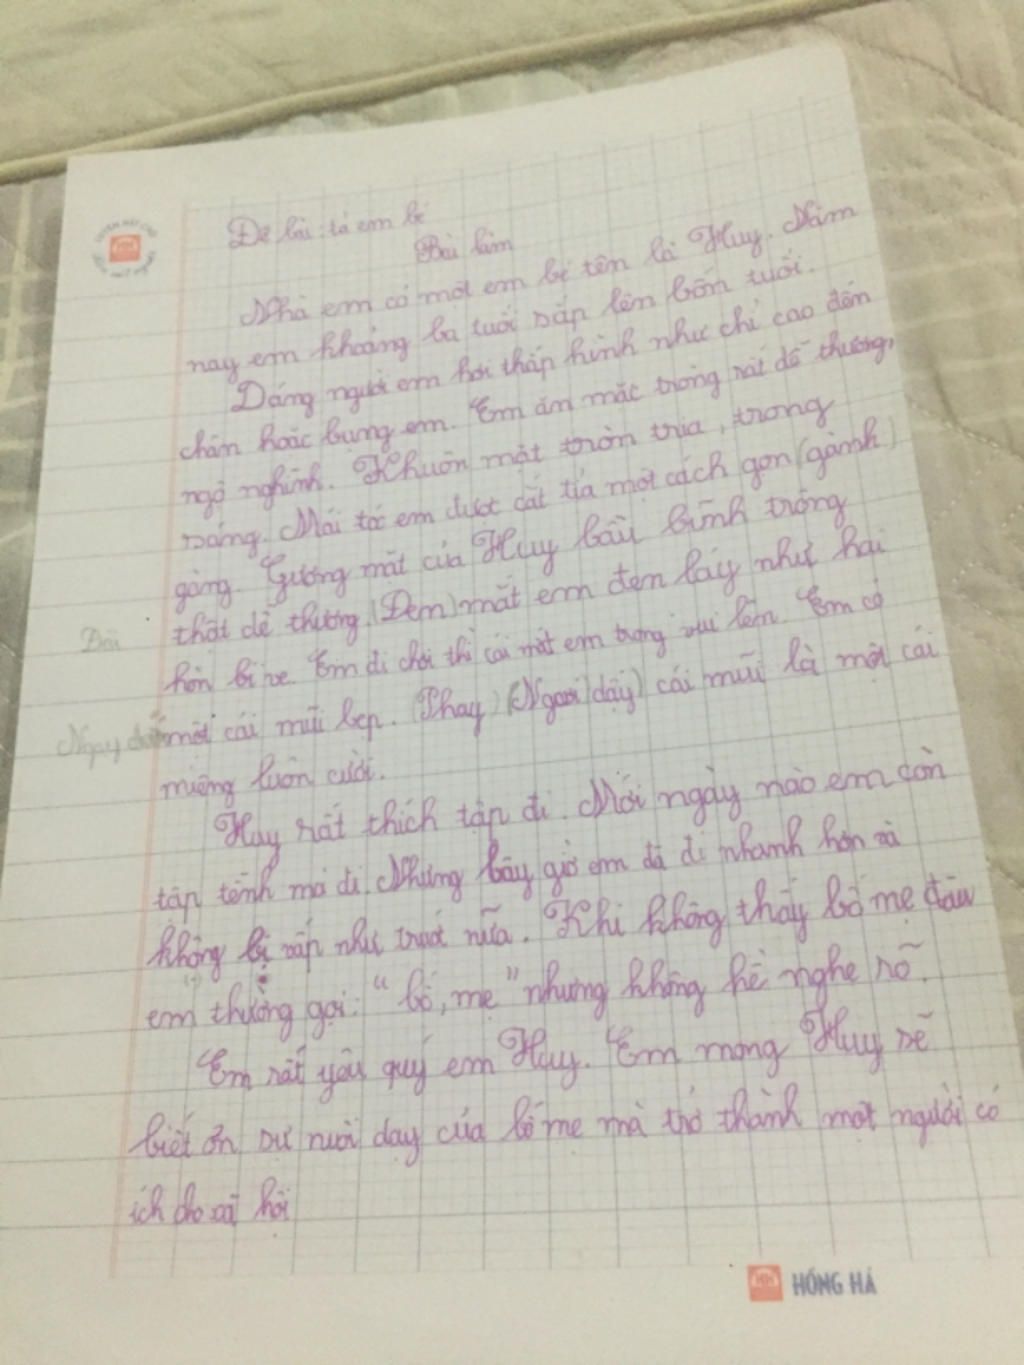 Đề bài: tả em bé
Bài làm
Nhà em có một em bé tên là Huy. Năm
nay em khoảng ba tuổi sắp lên bốn tuổi.
Dáng người em hơi thấp hình như chỉ cao đến
chân hoặc bụng em. Em ăn mặc trông rất dễ thương,
ngộ nghĩnh. Khuôn mặt tròn trịa, trong
sáng. Mái tóc em được cắt tỉa một cách gọn (gành)
gàng. Gương mặt của Huy bầu bĩnh trông
thật dễ thương. (Đem) mắt em đen láy như hai
Đôi
hòn bi ve. Em đi chơi thì cái mặt em trong vui lên. Em có
một cái mũi lẹp. (Phay) (Ngoài) (dậy) cái mũi là một cái
Ngay dưới
miệng luôn cười.
Huy rất thích tập đi. Mới ngày nào em còn
tập tễnh mà đi. Nhưng bây giờ em đã đi nhanh hơn và
không bị vấp như trước nữa. Khi không thấy bố mẹ đâu
em thường gọi: "bố, mẹ" nhưng không hề nghe rõ.
Em rất yêu quý em Huy. Em mong Huy sẽ
biết ơn sự nuôi dạy của bố mẹ mà trở thành một người có
ích cho xã hội
HỒNG HÀ